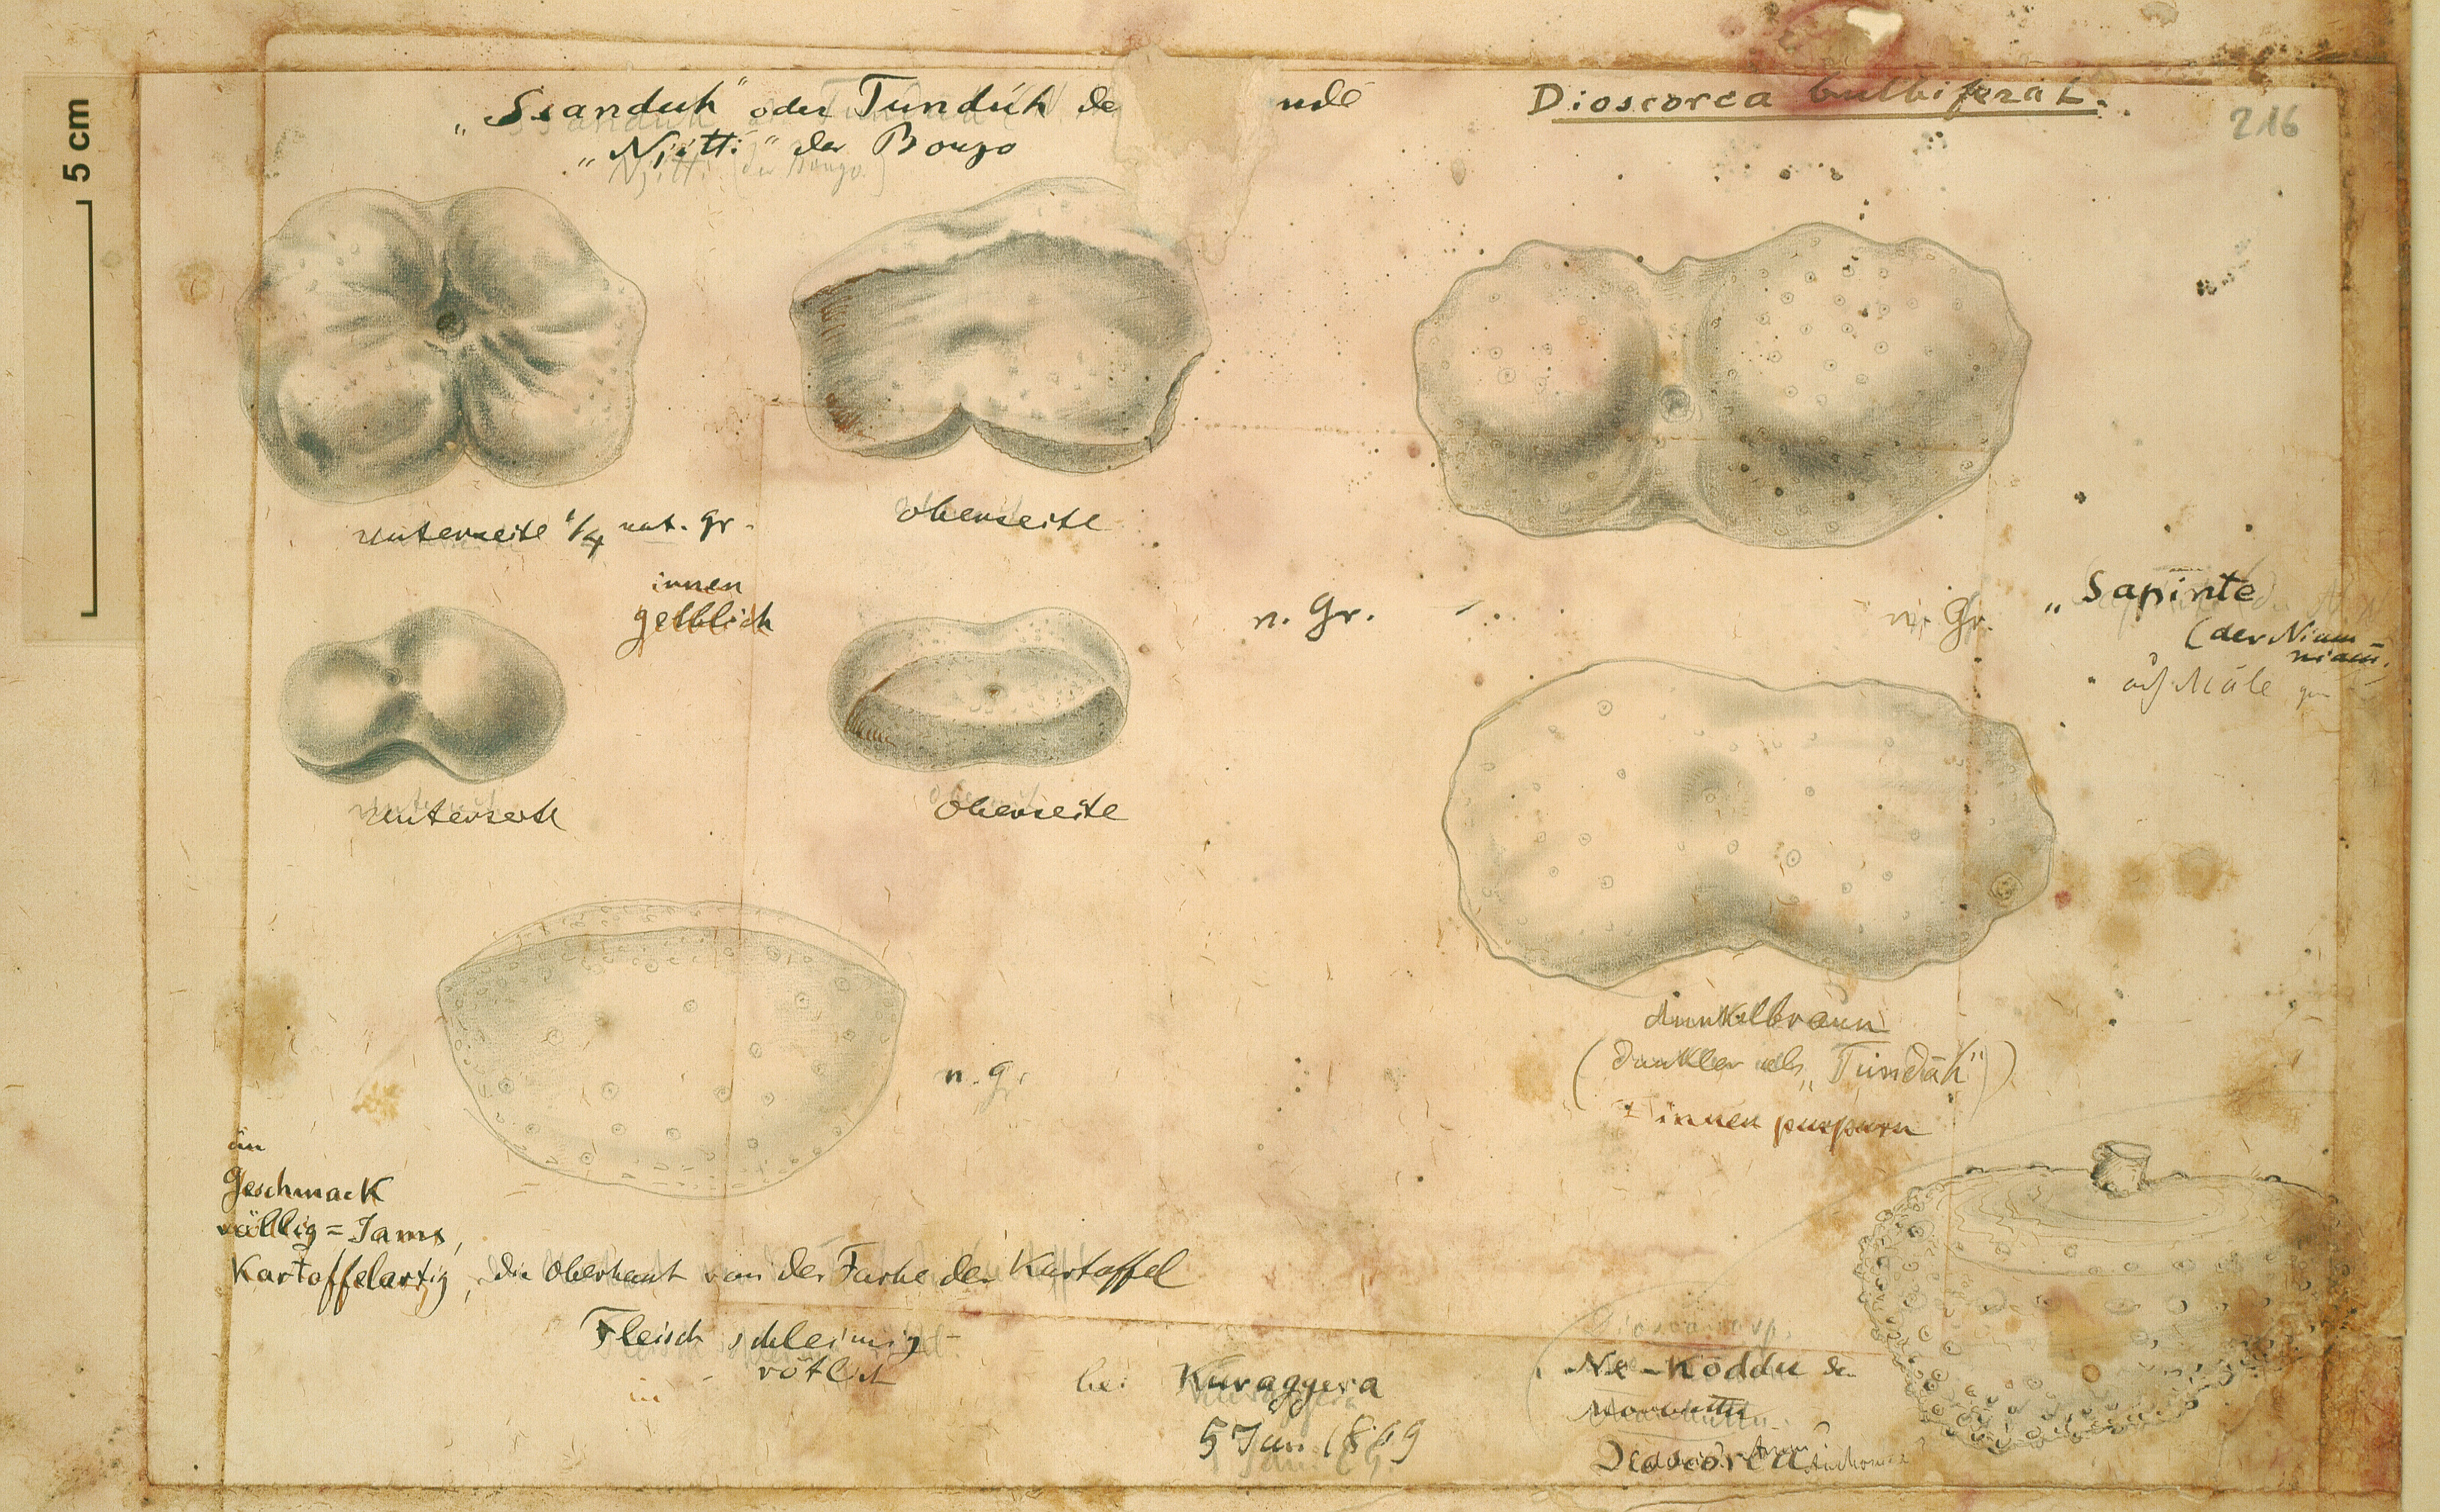 5 cm
„Ssanduh" oder Tunduh de
ndé
„Njitti" der Bongo
Dioscorea bulbifera L.
216
Unterseite 1/4 nat. gr.
Oberseite
innen
gelblich
n. Gr.
n. Gr.
„Sapinte
(der Niam-
niam.
Unterseite
Oberseite
n. g.
dunkelbraun
(dunkler als „Tunduh")
innen purpurn
im
Geschmack
völlig = Jams,
Kartoffelartig, die Oberhaut von der Farbe der Kartoffel
Fleisch schleimig-
rötlich
bei Kuraggera
5 Jun. 1869
Dioscorea sp.
Ne-Koddu de
Dioscorea